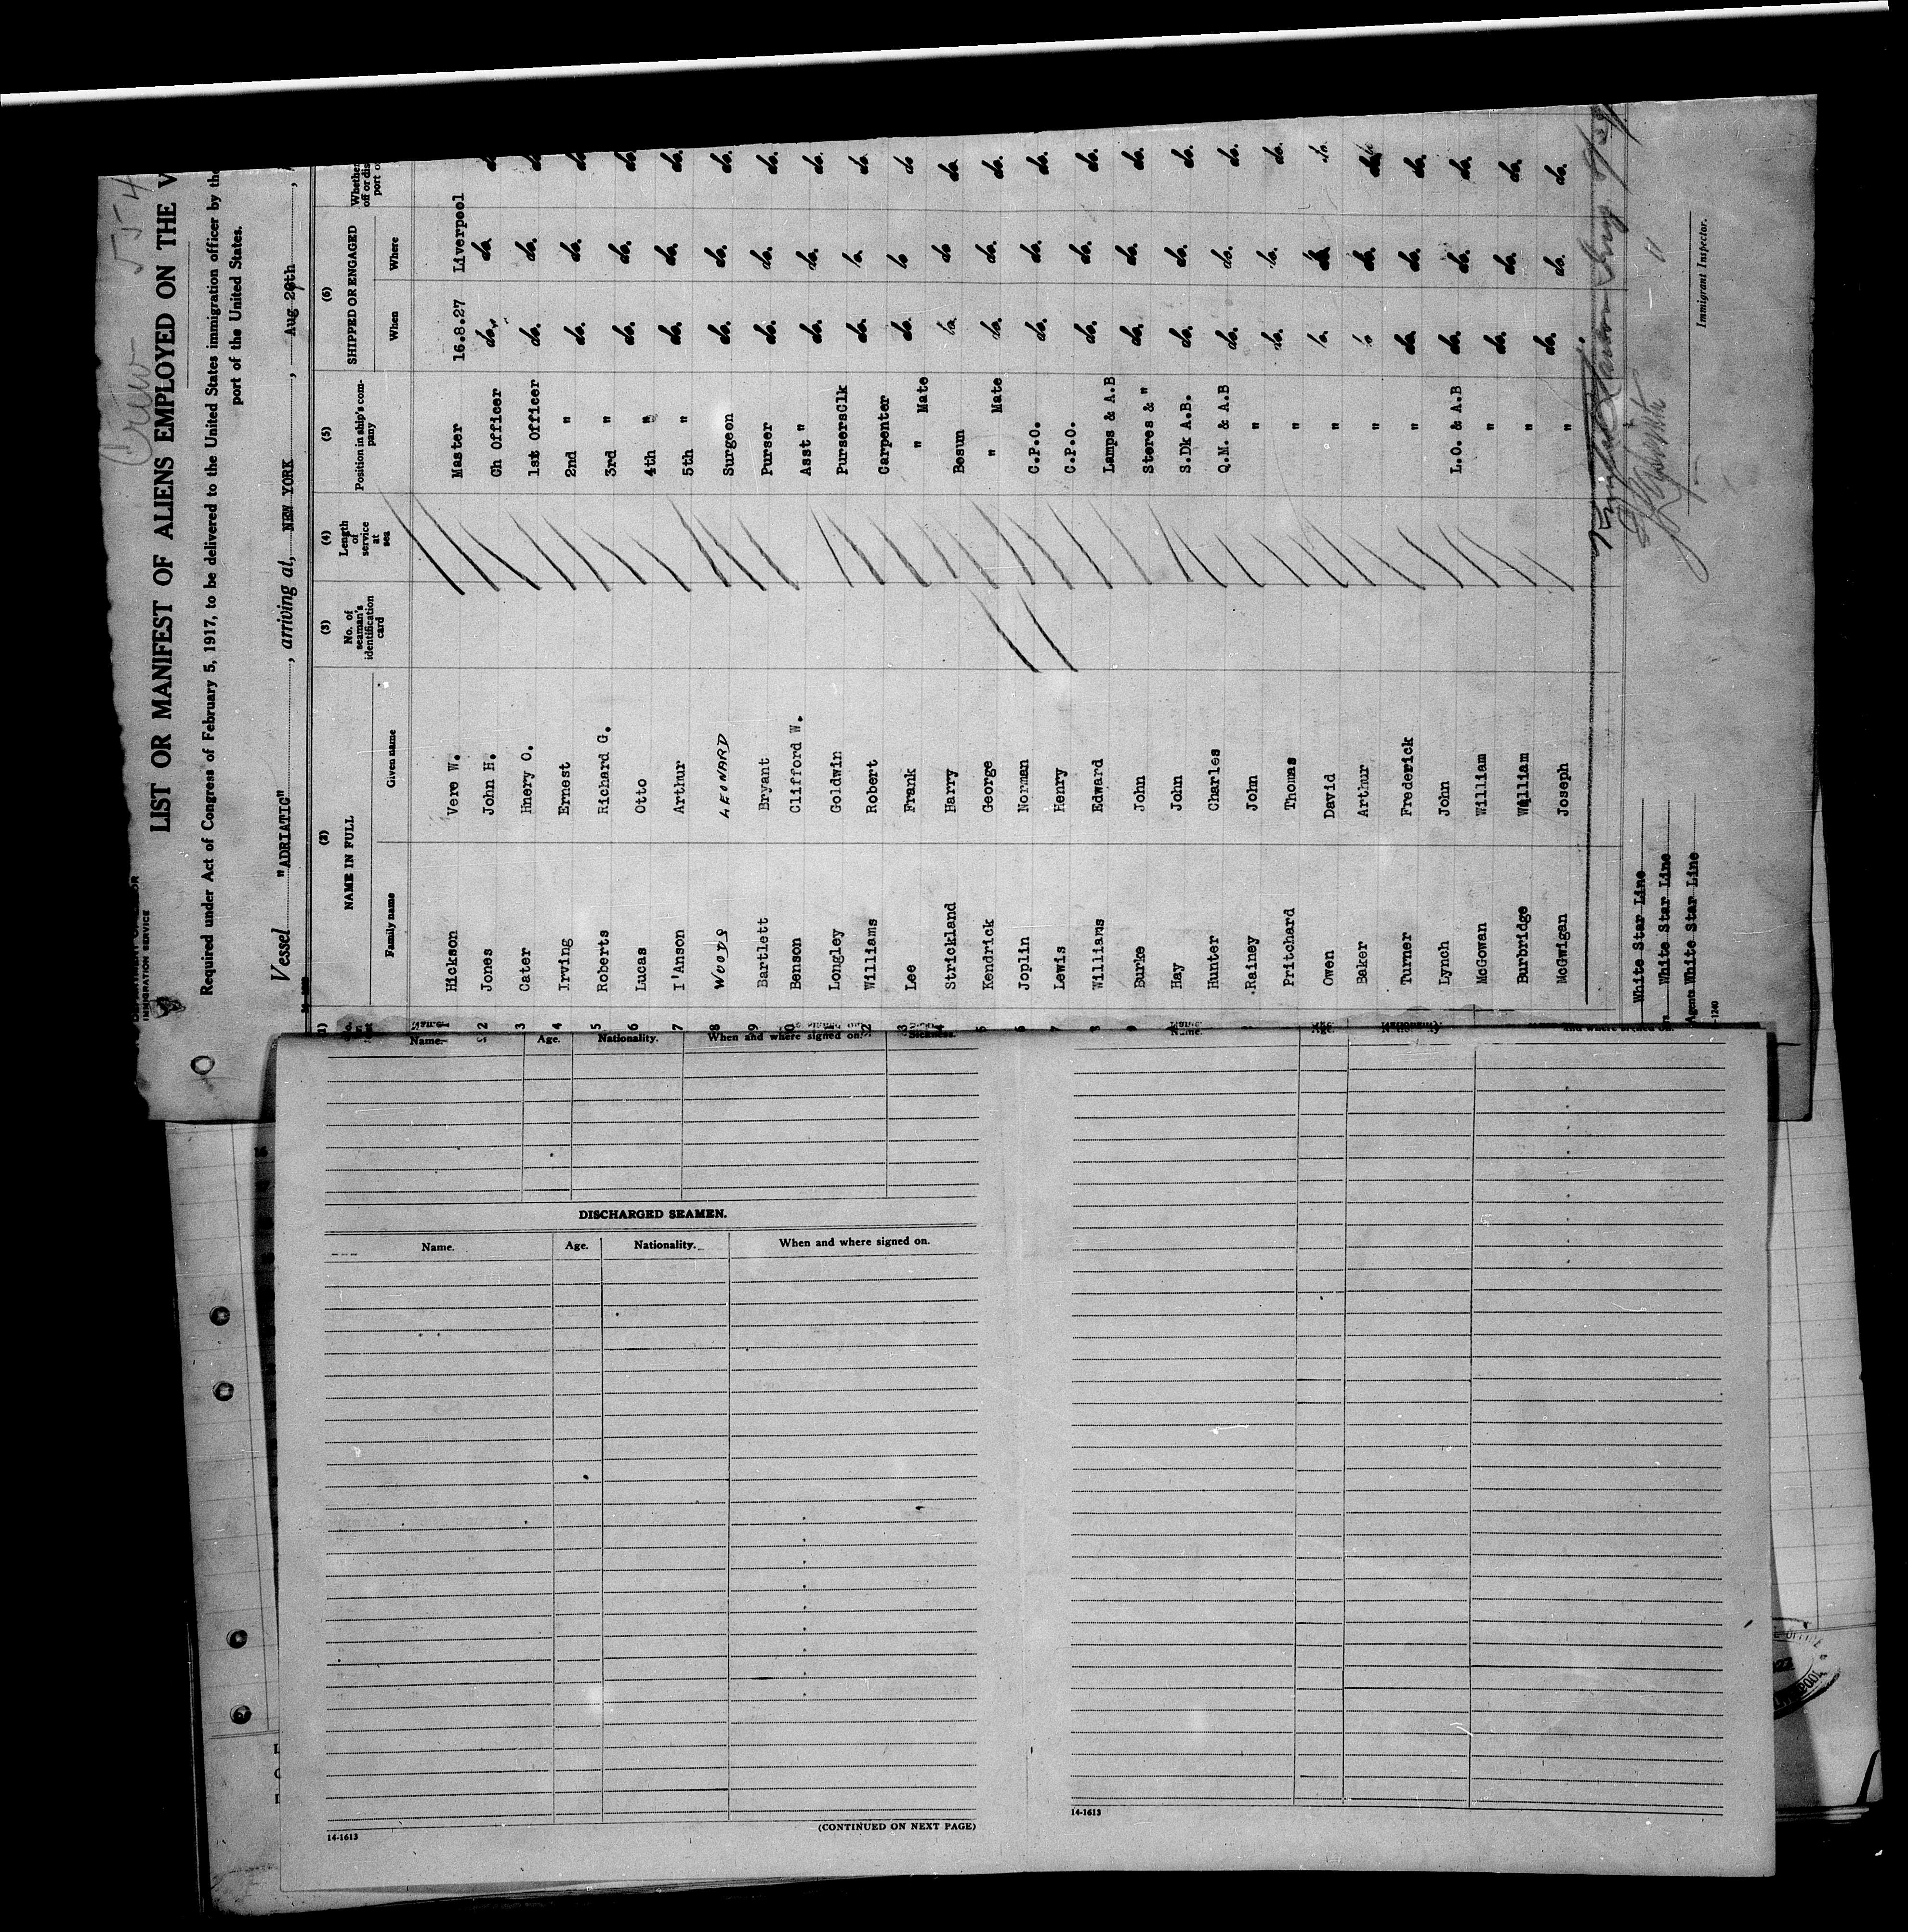 Crew 554
LIST OR MANIFEST OF ALIENS EMPLOYED ON THE V
IMMIGRATION SERVICE
Required under Act of Congress of February 5, 1917, to be delivered to the United States immigration officer by the
port of the United States.
Vessel "ADRIATIC", arriving at, NEW YORK, Aug
(2) (3) (4) (5) (6)
NAME IN FULL No. of seaman's identification card Length of service at sea Position in ship's company SHIPPED OR ENGAGED
Family name Given name When Where
Hickson Vere W. Master 16.8.27 Liverpool
2 Jones John H. Ch Officer do. do. do.
3 Cater Hnery O. 1st Officer do. do. do.
4 Irving Ernest 2nd " do. do. do.
5 Roberts Richard G. 3rd " do. do. do.
6 Lucas Otto 4th " do. do. do.
7 I'Anson Arthur 5th " do. do. do.
8 WOODS LEONARD Surgeon do. do. do.
9 Bartlett Bryant Purser do. do. do.
10 Benson Clifford W. Asst " do. do. do.
Longley Goldwin PursersClk do. do. do.
2 Williams Robert Carpenter do. do do
3 Lee Frank " Mate do. do do.
4 Strickland Harry Bosun do. do. do.
5 Kendrick George " Mate do. do. do.
6 Joplin Norman C.P.O. do. do. do.
7 Lewis Henry C.P.O. do. do. do.
8 Williams Edward Lamps & A.B do. do. do.
9 Burke John Stores & " do. do. do.
Hay John S.Dk A.B. do. do. do.
Hunter Charles Q.M. & A.B do. do. do.
Rainey John " do. do. do.
Pritchard Thomas " do. do. do.
Owen David " do. do. do.
Baker Arthur " do. do. do.
Turner Frederick " do. do. do.
Lynch John L.O. & A.B do. do. do.
McGowan William " do. do. do.
Burbridge William " do. do. do.
McGwigan Joseph " do. do. do.
White Star Line
White Star Line
Agents White Star Line
Immigrant Inspector.
Name. Age. Nationality. When and where signed on. Sickness.
DISCHARGED SEAMEN.
Name. Age. Nationality. When and where signed on.
14-1613
(CONTINUED ON NEXT PAGE)
Name. Age. Nationality. and where signed on.
14-1613